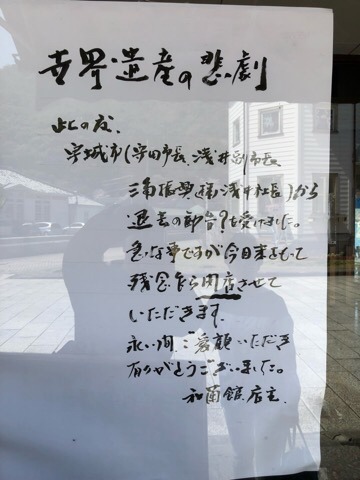 世界遺産の悲劇
此の度、
宇城市(守田市長、浅井副市長
三角振興㈱浅井社長)から
退去の勧告?を受けました。
急な事ですが今日末をもって
残念乍ら閉店させて
いただきます。
永い間、ご愛顧いただき
有りがとうございました。
和蘭館 店主